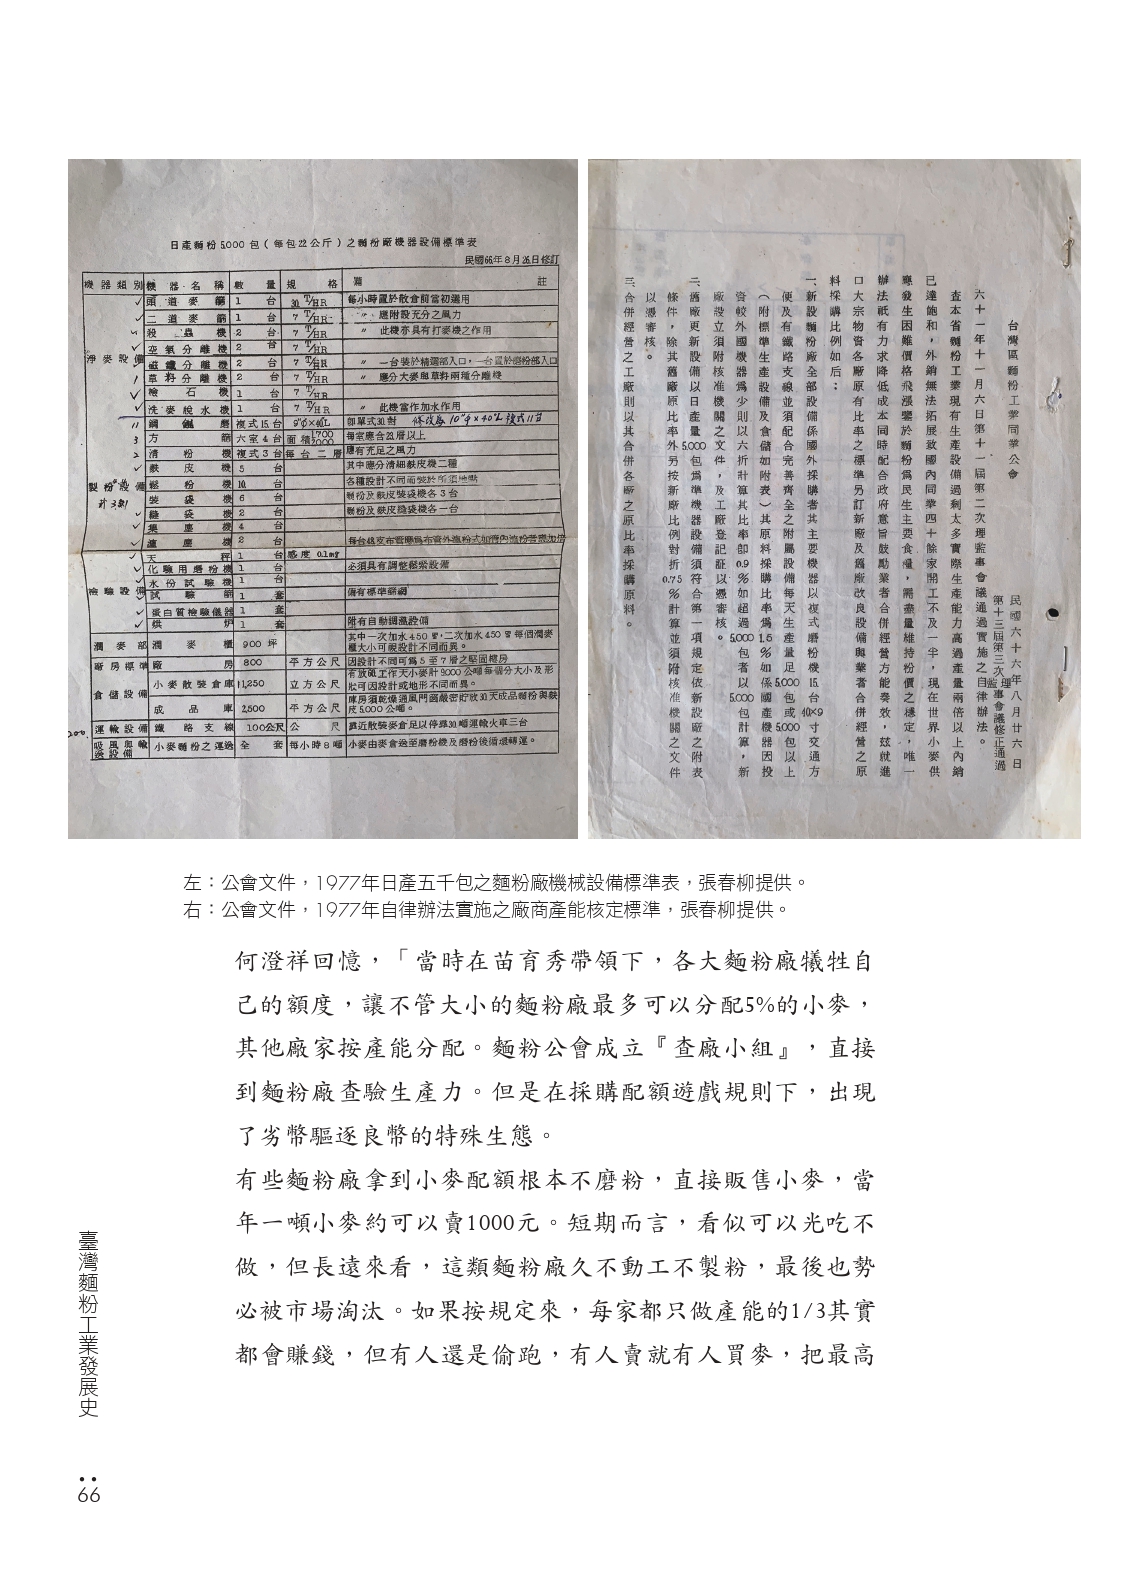 日產麵粉5,000包（每包22公斤）之麵粉廠機器設備標準表
民國66年8月26日修訂
機器類別 機器名稱 數量 規格 備註
淨麥設備
頭道麥篩 1台 30 T/HR 每小時置於散倉前當初選用
二道麥篩 1台 7 T/HR 〃 應附設充分之風力
殺蟲機 2台 7 T/HR 〃 此機亦具有打麥機之作用
空氣分離機 2台 7 T/HR
磁鐵分離機 2台 7 T/HR 〃 一台裝於精選部入口，一台置於磨粉部入口
草料分離機 2台 7 T/HR 〃 應分大麥與草料兩種分離機
檢石機 1台 7 T/HR
洗麥脫水機 1台 7 T/HR 〃 此機當作加水作用
製粉設備
鋼磨 複式15台 9"φ×40"L 即單式30對 修改為10"φ×40"L複式11台
方篩 六室4台 面積 每室應合22層以上
清粉機 複式3台 每台二層 應有充足之風力
麩皮機 5台 其中應分清細麩皮機二種
鬆粉機 10台 各種設計不同而裝於所須地點
裝袋機 6台 麵粉及麩皮裝袋機各3台
縫袋機 2台 麵粉及麩皮縫袋機各一台
集塵機 4台
濾塵機 2台
檢驗設備
天秤 1台 感度0.1mg
化驗用磨粉機 1台 必須具有調整鬆緊設備
水份試驗機 1台
試驗篩 1套 備有標準篩網
蛋白質檢驗儀器 1套
烘爐 1套 附有自動調溫設備
潤麥部 潤麥櫃 900坪 其中一次加水450坪，二次加水450坪每個潤麥
櫃大小可視設計不同而異。
廠房標準 廠房 800 平方公尺 因設計不同可為5至7層之堅固樓房
倉儲設備 小麥散裝倉庫 11,250 立方公尺 有放磁工作天小麥計9000公噸每個分大小及形
狀可因設計或地形不同而異。
成品庫 2,500 平方公尺 庫房須乾燥通風門窗嚴密貯放30天成品麵粉與麩
皮5,000公噸。
運輸設備 鐵路支線 100公尺 公尺 靠近散裝麥倉足以停靠30噸運輸火車三台
吸風與輸送設備 小麥麵粉之運送 全套 每小時8噸 小麥由麥倉送至磨粉機及磨粉後循環轉運。
台灣區麵粉工業同業公會
民國六十六年八月廿六日
第十三屆第三次理監事會議修正通過
六十一年十一月六日第十一屆第二次理監事會議通過實施之自律辦法。
查本省麵粉工業現有生產設備過剩太多實際生產能力高過產量兩倍以上內銷
已達飽和，外銷無法拓展致國內同業四十餘家開工不及一半，現在世界小麥供
應發生困難價格飛漲鑒於麵粉為民生主要食糧，需盡量維持粉價之穩定，唯一
辦法祇有力求降低成本同時配合政府意旨鼓勵業者合併經營方能奏效，茲就進
口大宗物資各廠原有比率之標準另訂新廠及舊廠改良設備與業者合併經營之原
料採購比例如后：
一、新設麵粉廠全部設備係國外採購者其主要機器以複式磨粉機15台40×9寸交通方
便及有鐵路支線並須配合完善齊全之附屬設備每天生產量足5,000包或5,000包以上
（附標準生產設備及倉儲如附表）其原料採購比率為1.5％如係國產機器因投
資較外國機器為少則以六折計算其比率即0.9％如超過5,000包者以5,000包計算，新
廠設立須附核准機關之文件，及工廠登記証以憑審核。
二、舊廠更新設備以日產量5,000包為準機器設備須符合第一項規定依新設廠之附表
條件，除其舊廠原比率外另按新廠比例對折0.75％計算並須附核准機關之文件
以憑審核。
三、合併經營之工廠則以其合併各廠之原比率採購原料。
左：公會文件，1977年日產五千包之麵粉廠機械設備標準表，張春柳提供。
右：公會文件，1977年自律辦法實施之廠商產能核定標準，張春柳提供。
何澄祥回憶，「當時在苗育秀帶領下，各大麵粉廠犧牲自
己的額度，讓不管大小的麵粉廠最多可以分配5%的小麥，
其他廠家按產能分配。麵粉公會成立『查廠小組』，直接
到麵粉廠查驗生產力。但是在採購配額遊戲規則下，出現
了劣幣驅逐良幣的特殊生態。
有些麵粉廠拿到小麥配額根本不磨粉，直接販售小麥，當
年一噸小麥約可以賣1000元。短期而言，看似可以光吃不
做，但長遠來看，這類麵粉廠久不動工不製粉，最後也勢
必被市場淘汰。如果按規定來，每家都只做產能的1/3其實
都會賺錢，但有人還是偷跑，有人賣就有人買麥，把最高
臺灣麵粉工業發展史
66